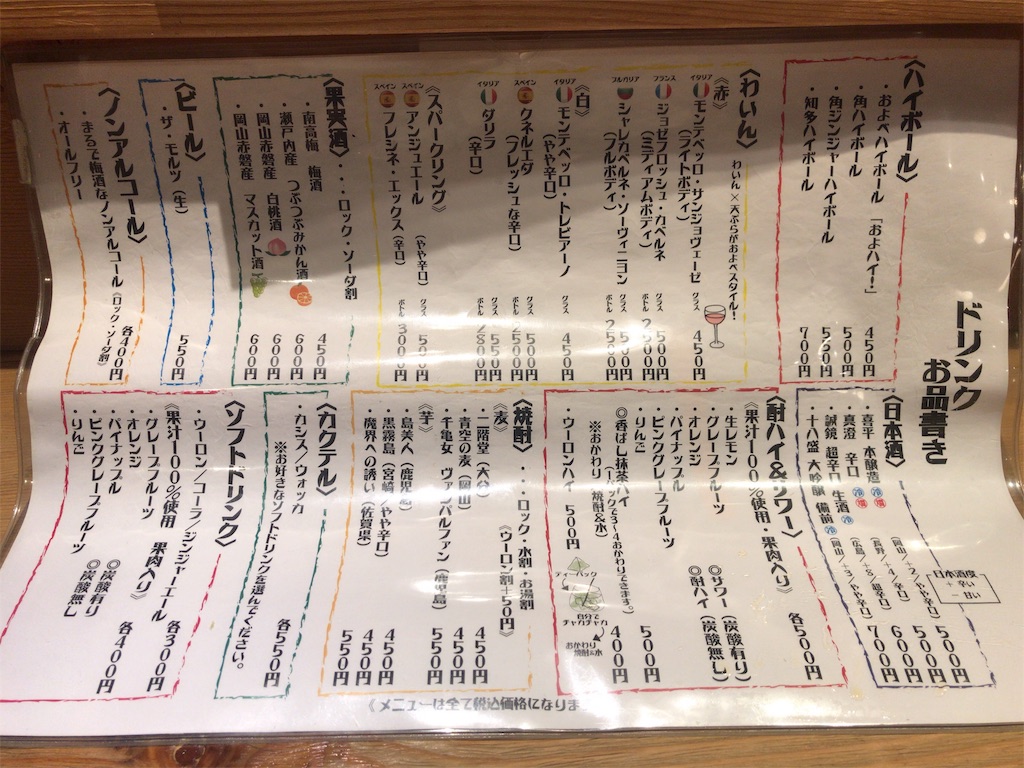 ドリンク
お品書き
〈ハイボール〉
・およべハイボール「およハイ!」 450円
・角ハイボール 500円
・角ジンジャーハイボール 550円
・知多ハイボール 700円
〈わいん〉 わいん×天ぷらがおよべスタイル!
《赤》
イタリア モンテベッロ・サンジョヴェーゼ グラス 450円
(ライトボディ)
フランス ジョゼフロッシュ・カベルネ グラス 500円
(ミディアムボディ) ボトル 2500円
ブルガリア シャレカベルネ・ソーヴィニヨン グラス 500円
(フルボディ) ボトル 2500円
《白》
イタリア モンテベッロ・トレビアーノ グラス 450円
(やや辛口)
スペイン クネルエダ グラス 500円
(フレッシュな辛口) ボトル 2500円
イタリア ダリラ グラス 550円
(辛口) ボトル 2800円
《スパークリング》
スペイン アンジュエール (やや辛口) グラス 500円
スペイン フレシネ・エックス(辛口) ボトル 3000円
〈果実酒〉・・・ロック・ソーダ割
・南高梅 梅酒 450円
・瀬戸内産 つぶつぶみかん酒 600円
・岡山赤磐産 白桃酒 600円
・岡山赤磐産 マスカット酒 600円
〈ビール〉
・ザ・モルツ(生) 550円
〈ノンアルコール〉
・まるで梅酒なノンアルコール(ロック・ソーダ割)
・オールフリー 各400円
〈日本酒〉
日本酒度
+ 辛い
- 甘い
・喜平 本醸造 冷 燗 (岡山/+2/やや辛口) 500円
・真澄 辛口 冷 燗 (長野/+4/辛口) 500円
・誠鏡 超辛口 生酒 冷 (広島/+8/超辛口) 600円
・十八盛 大吟醸 備前 冷 (岡山/+3/やや辛口) 700円
〈酎ハイ&サワー〉
《果汁100%使用・果肉入り》 各500円
・生レモン
・グレープフルーツ
・オレンジ
・パイナップル
・ピンクグレープフルーツ
・りんご
◎サワー(炭酸有り)
◎酎ハイ(炭酸無し)
◎香ばし抹茶ハイ 500円
(1パックで3〜4おかわりできます。)
※おかわり 焼酎&水 400円
・ウーロンハイ 500円
ティーパック
自分でチャカチャカ
おかわり
焼酎&水
〈焼酎〉・・・ロック・水割・お湯割
《ウーロン割+50円》
《麦》
・二階堂(大分) 450円
・青空の麦(岡山) 450円
・千亀女 ヴァンパルファン(鹿児島) 550円
《芋》
・島美人(鹿児島) 450円
・黒霧島(宮崎/やや辛口) 450円
・魔界への誘い(佐賀県) 550円
〈カクテル〉
・カシス/ウォッカ 各550円
※お好きなソフトドリンクを選んでください。
〈ソフトドリンク〉
・ウーロン/コーラ/ジンジャーエール 各300円
《果汁100%使用 果肉入り》 各400円
・グレープフルーツ
・オレンジ
・パイナップル
・ピンクグレープフルーツ
・りんご
◎炭酸有り
◎炭酸無し
《メニューは全て税込価格になりま